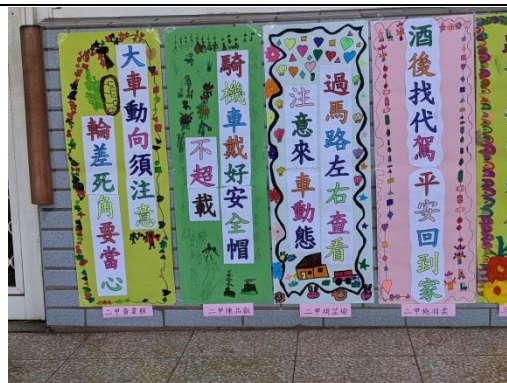 大車動向須注意
輪差死角要當心
騎機車戴好安全帽
不超載
過馬路左右查看
注意來車動態
酒後找代駕
平安回到家
二甲
二甲陳品
二甲
二甲施羽